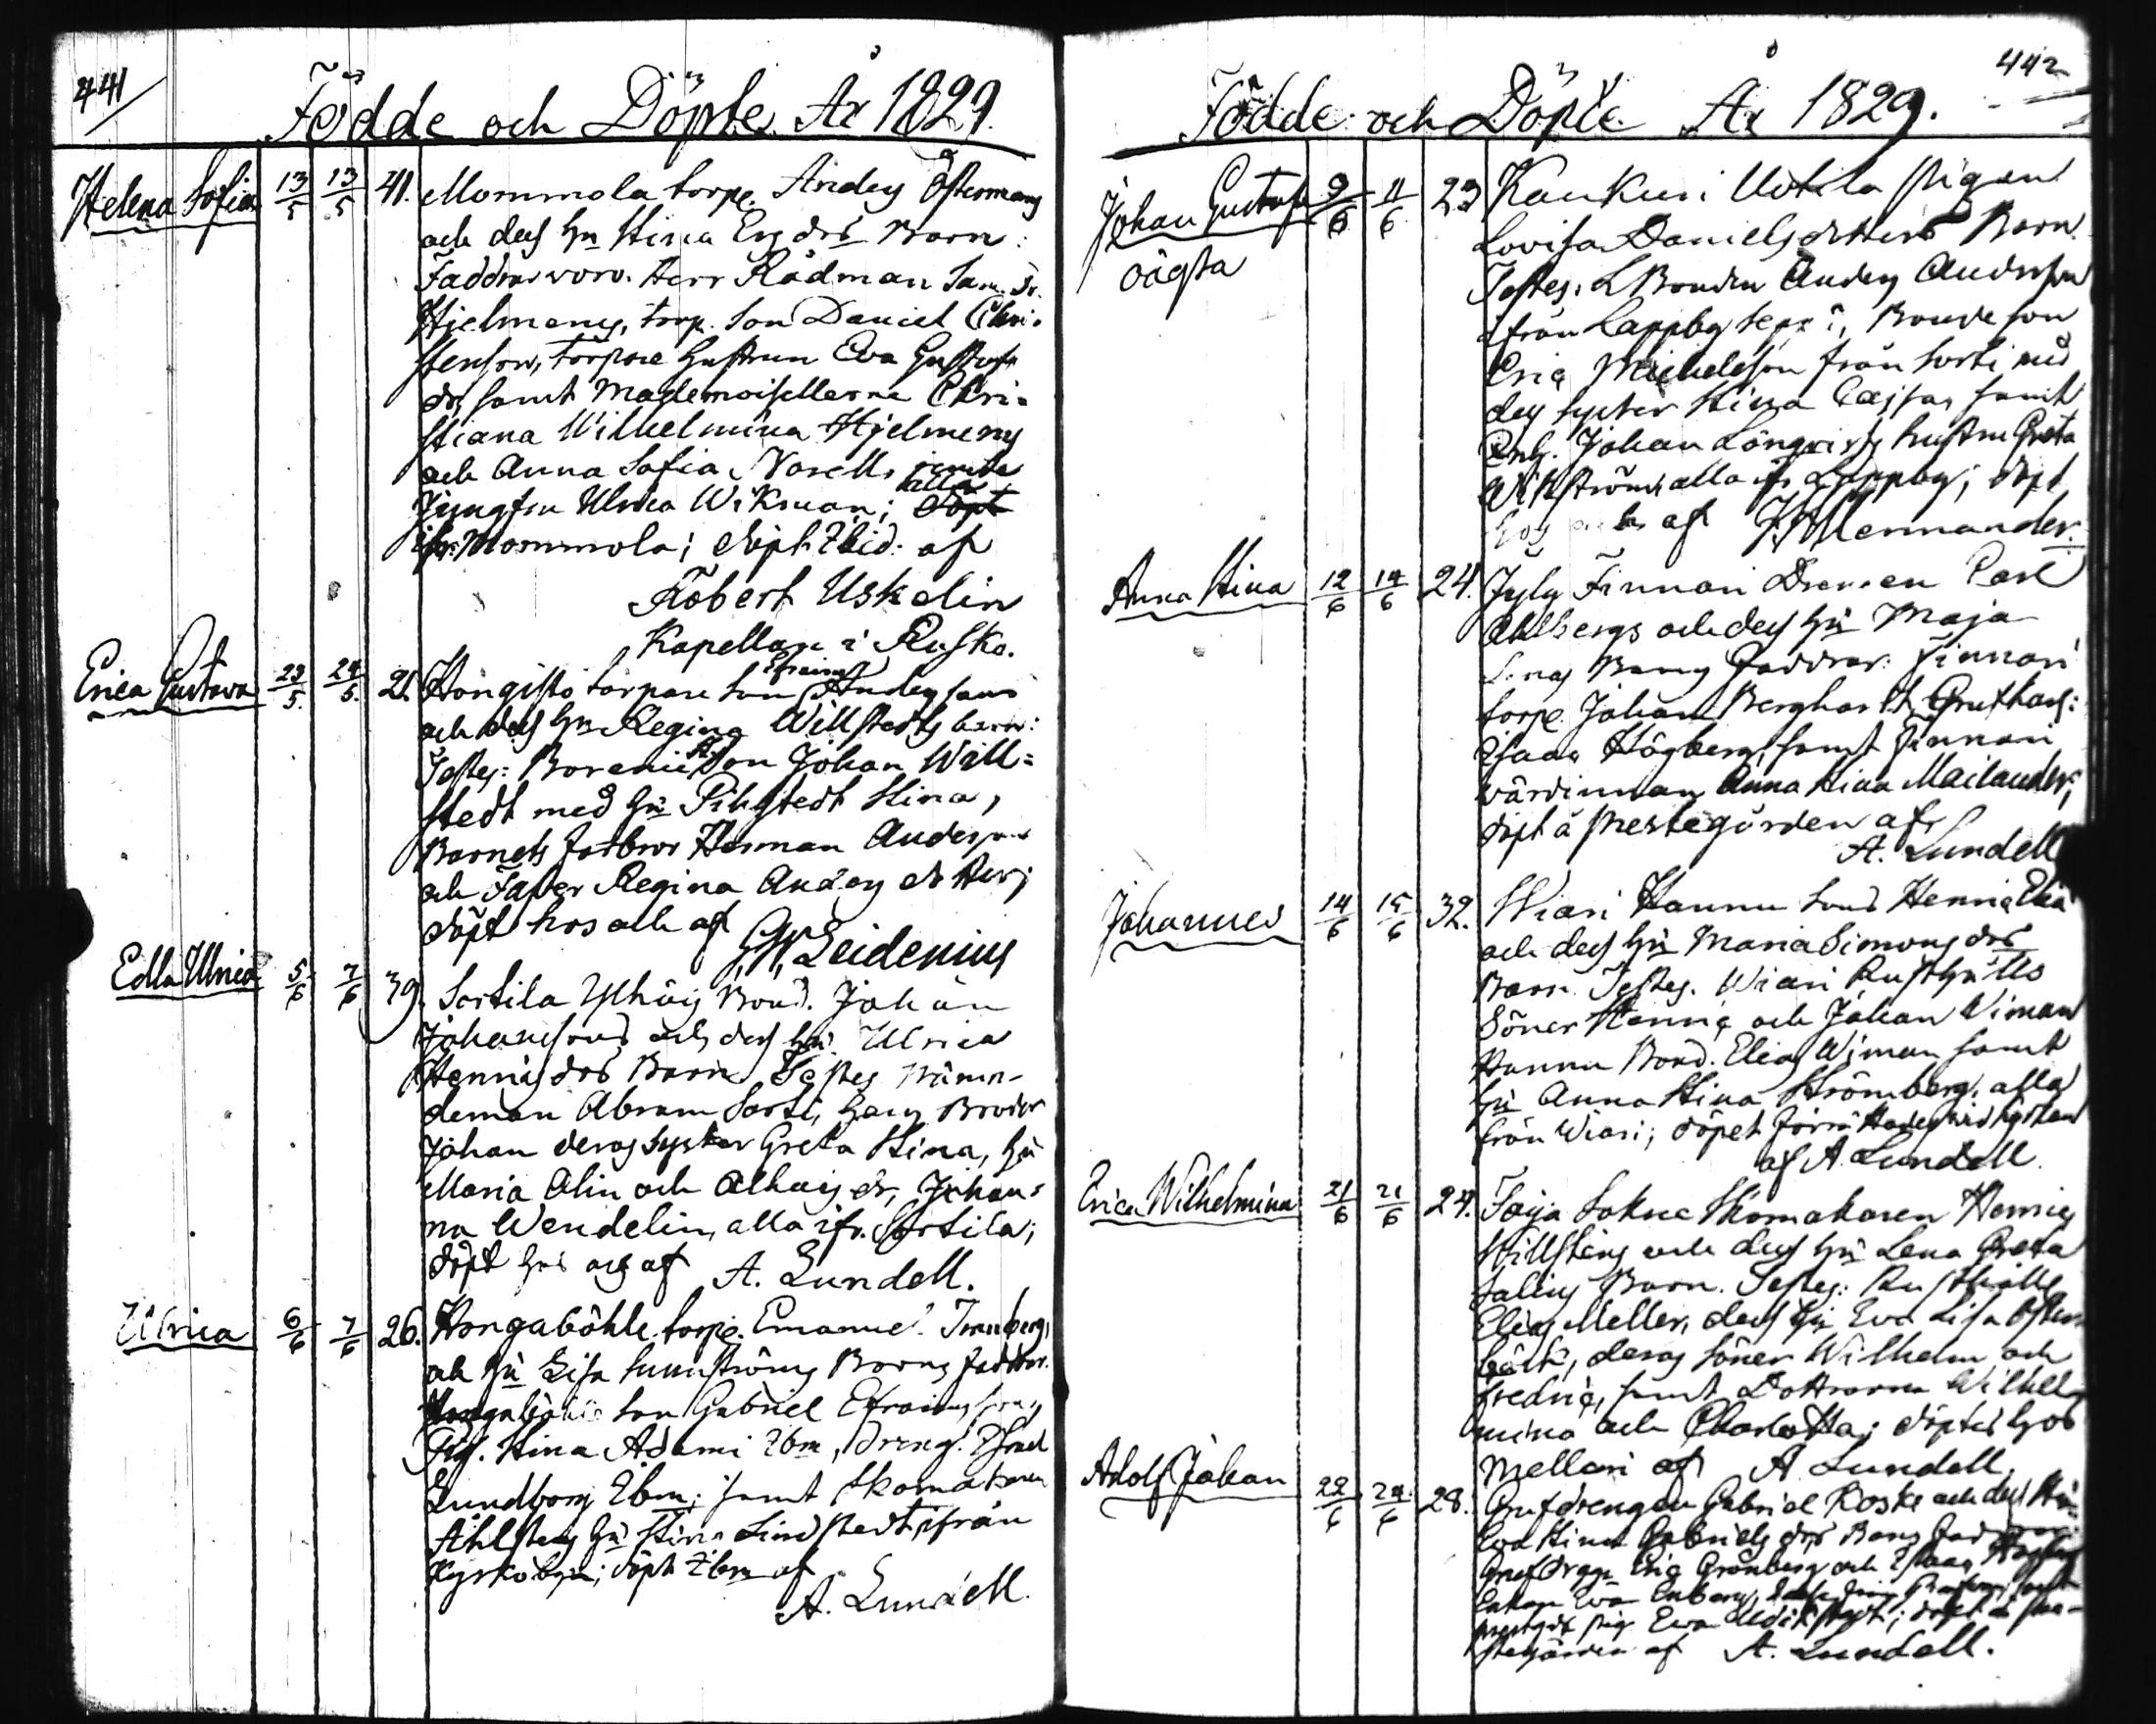 441
Födde och Döpte År 1829.
Helena Sofia 13/5 13/5 41. Mommola torp. Anders Östermans
och dess hu Stina Ersdrs Barn:
Faddrar voro. Herr Rådman Sam. Fr.
Hjelmens, torp. Son Daniel Chri-
stenson, Torpare hustrun Eva Gustafs
dr, samt Mademoisellerna Chri-
stiana Wilhelmina Hjelmerus
och Anna Sofia Norell, jemte
Jungfru Ulrica Wikman; döpt alla
ifr. Mommola; döpt Ibid. af
Robert Uskelin
Kapellan i Rusko.
Erica Gustava 23/5. 24/5. 21. Hongisto torpare Son Efraim Andersons
och dess hu Regina Willstedts barn:
Testes: Son Johan Will-
stedt med hu Stina,
Barnets farbror Herman Anderson
och Faster Regina Anders dotter;
döpt hos och af G. W. Leidenius
Edla Ulrica 5/6 7/6 39. Sortila Ylhäis Bond. Johan
Johansons och dess hu. Ulrica
Hennis drs Barn Testes Nämn-
deman Abram Sorti, hans Broder
Johan deras Syster Greta Stina, hu
Maria Alin och Alhais dr, Johan-
na Wendelin, alla ifr. Sortila;
döpt hos och af A. Lundell.
Ulrica 6/6 7/6 26. Hongaböhle torp. Emanuel
och hu Lisa Sunnströms Barns faddrar.
Hongaböhle Son Gabriel Efraimsson,
Pig. Stina Adami Ibm, dreng. Israel
Lundborg Ibm; samt Skomakaren
Ahlstens hu Stina Lindstedt, ifrån
Kyrkobyn; döpt Ibm af
A. Lundell.
442
Födde och Döpte År 1829.
Johan Gustaf 9/6 11/6 23 Kankuri Uotila pigan
oägta Lovisa Danielsdotters Barn.
Testes. Bonden Anders Anderson
ifrån Lappby Seppä, Bonde son
Eric Michelsson från Sorti med
dess syster Stina Caisa, samt
Johan Lönqvists hustru Greta
Wikström, alla ifr Lappby; döpt
af Mennander.
Anna Stina 12/6 14/6 24. Jyly Finnari Drengen Carl
Ahlbergs och dess hu Maja
Lenas Barns Faddrar. Finnari
torp. Johan Berghardt,
Isaac Högberg, samt Finnari
värdinnan Anna Stina Mailander,
döpt å Prestegården af
A. Lundell
Johannes 14/6 15/6 32. Wiari Hannu Sons Henric Elia
och dess hu Maria Simons drs
Barn. Testes. Wiari Rusthålls
Söner Henric och Johan Wiman
Hannu Bond. Elias Wiman samt
hu Anna Stina Strömberg, alla
från Wiari; döpet förrättades vid kyrkan
af A. Lundell.
Erica Wilhelmina 21/6 21/6 24. Toija Sokne Skomakaren Henric
Hillstens och dess hu Lena Greta
Salins Barn. Testes: Rusthåll.
Elias Meller, dess hu Eva Lisa Öster-
bäck, deras söner Wilhelm och
Fredric, samt Döttrarna Wilhel-
mina och Charlotta; döptes hos
Mellari af A. Lundell.
Adolf Johan 22/6 24/6 28. Grufdrengen Gabriel Koski och dess Hu
Eva Stina Gabriels drs Barns Faddrar:
Grufdreng. Eric Grönberg och Isaac Högberg
Enkan Eva Enberg, samt
prestgds pig. Eva döpt å pre-
stegården af A. Lundell.